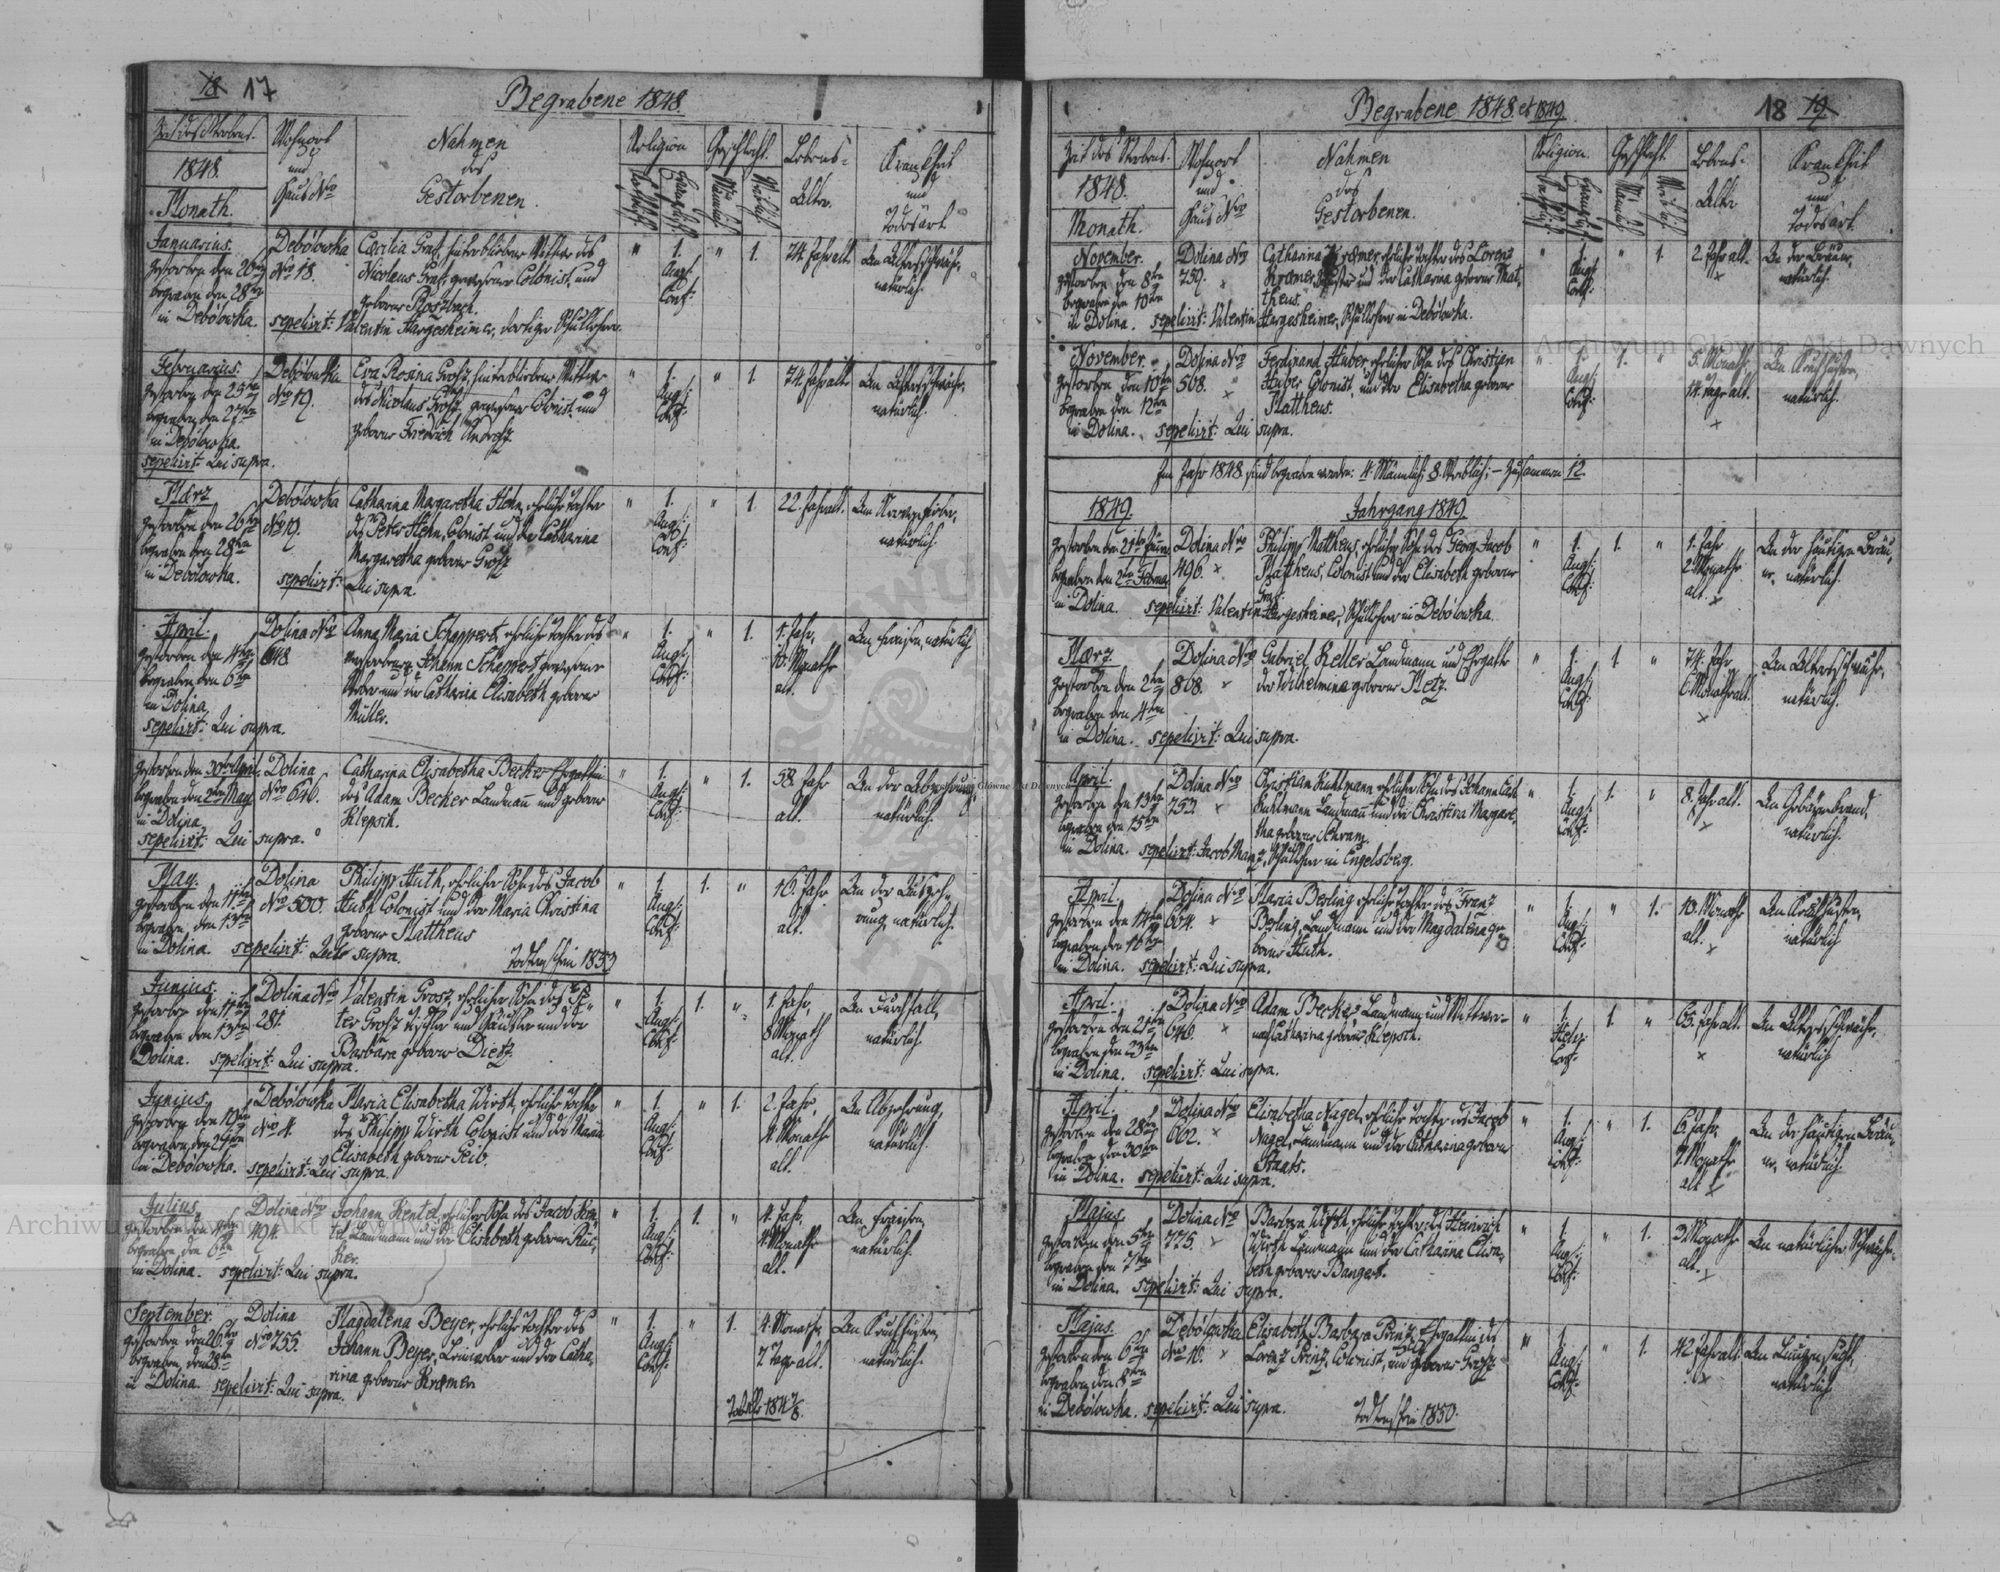 18 17
Begrabene 1848.
Zeit des Sterbens.
1848.
Monath.
Wohnort
und
Haus Nro
Nahmen
des
Gestorbenen.
Religion
Geschlecht.
Lebens-
Alter.
Krankheit
und
Todesart
Januarius.
gestorben den 26ten
begraben den 28ten
in Debolowka.
Debolowka
Nro 18.
Cæcilia Graf, hinterbliebene Wittwe des
Nicolaus Graf, gewesener Colonist, und
geborne Roszbach.
sepelirt: Valentin Hargesheimer, dortiger Schullehrer.
" 1. " 1.
Augs:
Conf:
74. Jahr alt.
An Altersschwäche,
natürlich.
Februarius.
gestorben den 25ten
begraben den 27ten
in Debolowka.
sepelirt: Qui supra.
Debolowka
Nro 19.
Eva Rosina Grosz, hinterbliebene Wittwe
des Nicolaus Grosz, gewesener Colonist, und
geborne Fredrich
" 1. " 1.
Augs:
Conf:
74. Jahr alt.
An Altersschwäche,
natürlich.
Mærz
gestorben den 26ten
begraben den 28ten
in Debolowka.
Debolowka
Nro 19.
Catharina Margaretha Hehn, ehrliche Tochter
des Peter Hehn, Colonist und der Catharina
Margaretha geborne Grosz
sepelirt: Qui supra.
" 1. " 1.
Augs:
Conf:
22. Jahr alt.
An Nervenfieber,
natürlich.
April.
gestorben den 4ten
begraben den 6ten
in Dolina.
sepelirt: Qui supra.
Dolina Nro
648
Anna Maria Scheppert, ehrliche Tochter des
verstorbenen Johann Scheppert gewesener
Weber und der Catharina Elisabeth geborne
Müller.
" 1. " 1.
Augs:
Conf:
1. Jahr,
10. Monathe
alt.
An Fraisen, natürlich
gestorben den 30ten April,
begraben den 2ten May
in Dolina
sepelirt: Qui supra.
Dolina
Nro 646.
Catharina Elisabetha Becker Ehegattin
des Adam Becker Landmañ und geborne
Klepsch.
" 1. " 1.
Augs:
Conf:
58. Jahr
alt.
An der Abzehrung,
natürlich.
May.
gestorben den 11ten
begraben, den 13ten
in Dolina. sepelirt: Qui supra.
Dolina
Nro 500.
Philipp Huth, ehrlicher Sohn des Jacob
Huth Colonist und der Maria Christina
geborne Mattheus
Todtenschein 1853
" 1. 1. "
Augs:
Conf:
16. Jahr
alt.
An der Auszeh-
rung, natürlich.
Junius.
gestorben den 11ten
begraben den 13ten
Dolina. sepelirt: Qui supra.
Dolina Nro
281.
Valentin Grosz, ehrlicher Sohn des Pe-
ter Grosz Tischler und Häusler und der
Barbara geborne Dietz.
" 1. 1. "
Augs:
Conf:
1. Jahr,
8 Monath
alt.
An Durchfall,
natürlich.
Junius.
gestorben den 19ten
begraben, den 21ten
in Debolowka. sepelirt: Qui supra.
Debolowka
Nro 4.
Maria Elisabetha Wirth, ehrliche Tochter
des Philipp Wirth Colonist und der Maria
Elisabeth geborne Seib.
" 1. " 1.
Augs:
Conf:
2. Jahr,
4. Monathe
alt.
An Abzehrung,
natürlich.
Julius
gestorben den 4ten
begraben, den 6ten
in Dolina. sepelirt: Qui supra.
Dolina Nro
494.
Johann Hentel, ehrlicher Sohn des Jacob Hen-
tel, Landmann und der Elisabeth geborne Rüc-
ker.
" 1. 1. "
Augs:
Conf:
4. Jahr,
4. Monathe
alt.
An Fraisen,
natürlich.
September.
gestorben den 26ten
begraben, den 28ten
in Dolina. sepelirt: Qui supra.
Dolina
Nro 755.
Magdalena Beyer, ehrliche Tochter des
Johann Beyer, Leinweber und der Catha-
rina geborne Kræmer
" 1. " 1.
Augs:
Conf:
4. Monathe,
7 Tage alt.
An Keuchhusten,
natürlich.
1847/8.
Begrabene 1848. et 1849.
18 19.
Zeit des Sterbens.
1848.
Monath.
Wohnort
und
Haus Nro
Nahmen
des
Gestorbenen.
Religion.
Geschlecht.
Lebens-
Alter
Krankheit
und
Todesart.
November.
gestorben den 8ten
begraben den 10ten
in Dolina.
Dolina Nro
759.
Catharina Kræmer, ehrliche Tochter des Lorenz
Kræmer, und der Catharina geborne Mat-
theus.
sepelirt: Valentin Hargesheimer, Schullehrer in Debolowka.
" 1. " 1.
Augs:
Conf:
2. Jahr alt.
An der Bräune,
natürlich.
November.
gestorben den 10ten
begraben den 12ten
in Dolina. sepelirt: Qui supra.
Dolina Nro
508.
Ferdinand Huber, ehrlicher Sohn des Christian
Huber Colonist, und der Elisabetha geborne
Mattheus.
" 1. 1. "
Augs:
Conf:
5. Monath,
14. Tage alt.
An Keuchhusten,
natürlich.
Im Jahr 1848 sind begraben worden: 4. Männlich; 8. Weiblich; – Zusammen 12.
1849.
Jahrgang 1849.
begraben den 2ten Februar
in Dolina.
Dolina Nro
496.
Philipp Mattheus, ehrlicher Sohn des Georg Jacob
Mattheus, Colonist und der Elisabeth geborne
sepelirt: Valentin Hargesheimer, Schullehrer in Debolowka.
" 1. 1. "
Augs:
Conf:
1. Jahr
2 Monathe
alt.
An der häutigen Bräu-
ne, natürlich.
Mærz
gestorben den 2ten
begraben den 4ten
in Dolina. sepelirt: Qui supra.
Dolina Nro
808.
Gabriel Keller Landmann und Ehegatte
der Wilhelmina geborne Metz.
" 1. 1 "
Augs:
Conf:
74. Jahr
6. Monathe alt.
An Altersschwäche,
natürlich.
April.
gestorben den 13ten
begraben den 15ten
in Dolina.
Dolina Nro
753.
Christian Kuhlmann ehrlicher Sohn des Johann Carl
Kuhlmann Landmañ und der Christina Margare-
tha geborne Schram.
sepelirt: Jacob Manz, Schullehrer in Engelsberg.
" 1. 1. "
Augs:
Conf:
8. Jahr alt.
An natürlich.
April.
gestorben den 14ten
begraben den 16ten
in Dolina. sepelirt: Qui supra.
Dolina Nro
664.
Maria Besling ehrliche Tochter des Franz
Besling, Landmann und der Magdalena ge-
borne Huth.
" 1. " 1.
Augs:
Conf:
10. Monathe
alt.
An Keuchhusten,
natürlich
April.
gestorben den 21ten
begraben den 23ten
in Dolina. sepelirt: Qui supra.
Dolina Nro
646.
Adam Becker Landmann und Wittwer
nach Catharina geborne Klepsch.
" 1. 1. "
Helv:
Conf:
65. Jahr alt.
An Altersschwäche,
natürlich
April.
gestorben den 28ten
begraben den 30ten
in Dolina. sepelirt: Qui supra.
Dolina Nro
602.
Elisabetha Nagel, ehrliche Tochter des Jacob
Nagel, Landmann und der Catharina geborne
Staats.
" 1. " 1.
Augs:
Conf:
6. Jahr,
7. Monathe
alt
An der häutigen Bräu-
ne, natürlich.
Majus.
gestorben den 5ten
begraben den 7ten
in Dolina. sepelirt: Qui supra.
Dolina Nro
775.
Barbara Wirth, ehrliche Tochter des Heinrich
Wirth Landmann und der Catharina Elisa-
beth geborne Bangert.
" 1. " 1.
Augs:
Conf:
3. Monathe
alt.
An natürlicher Schwäche.
Majus.
gestorben den 6ten
begraben den 8ten
in Debolowka. sepelirt: Qui supra.
Debolowka
Nro 16.
Elisabeth Barbara Prinz, Ehegattin des
Lorenz Prinz, Colonist, und geborne Grosz
Todtenschein 1850.
" 1. " 1.
Augs:
Conf:
42. Jahr alt.
An Lungensucht,
natürlich
Archiwum Główne Akt Dawnych
Archiwum Główne Akt Dawnych
Główne Akt Dawnych